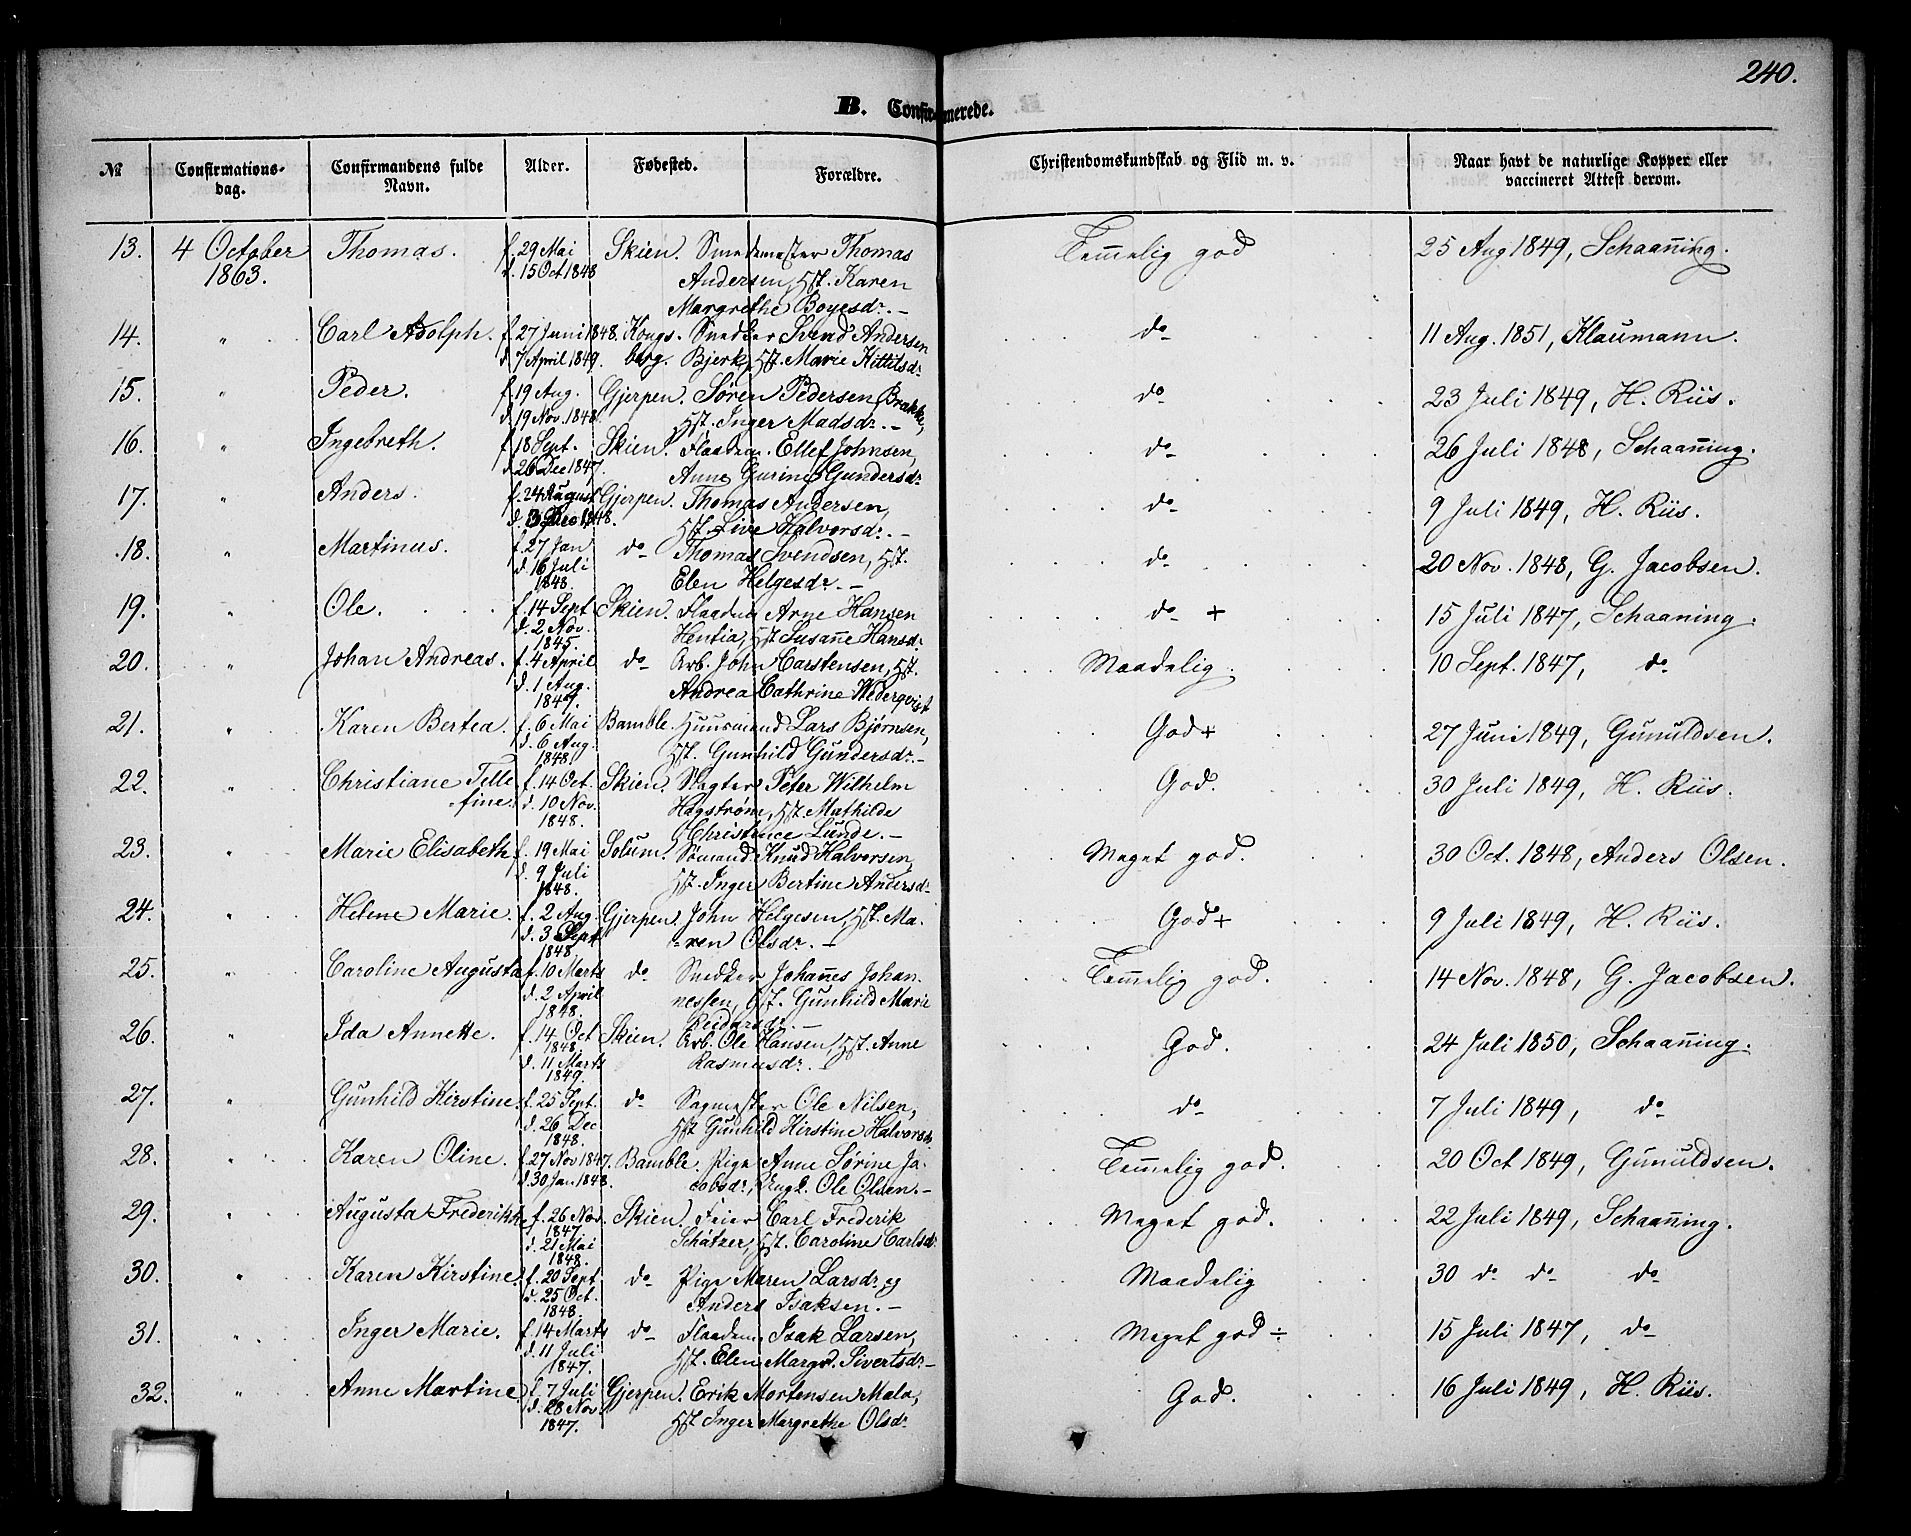 240.
B. Confirmerede.
№ Confirmations-dag. Confirmandens fulde Navn. Alder. Fødested. Forældre. Christendomskundskab og Flid m. v. Naar havt de naturlige Kopper eller vaccineret Attest derom.
13. 4 October Thomas. f. 29 Mai Skien. Smedemester Thomas Temmelig god 25 Aug 1849, Schaaning.
1863. d. 15 Oct 1848 Andersen, Hst. Karen
Margrethe Boyesdr. –
14. " Carl Adolph. f. 27 Juni 1848. Kongs- Snedker Svend Andersen do 11 Aug. 1851, Klaumann.
d. 7 April 1849. berg. Bjerk, Hst. Marie Kittilsdr
15. " Peder. f. 19 Aug. Gjerpen. Søren Pedersen Brække, do 23 Juli 1849, H. Riis.
d. 19 Nov. 1848 Hst. Inger Madsdr. –
16. " Ingebreth. f. 18 Sept. Skien. Flaadm. Ellef Johnsen, do 26 Juli 1848, Schaaning.
d. 26 Dec 1847. Anne Gurine Gundersdr
17. " Anders. f. 24 August Gjerpen. Thomas Andersen, do 9 Juli 1849, H. Riis.
d. 3 Dec 1848. Hst. Live Halvorsdr. –
18. " Martinus. f. 27 Jan do Thomas Svendsen, Hst. do 20 Nov. 1848, G. Jacobsen.
d. 16 Juli Elen Helgesdr. –
1848.
19. " Ole. f. 14 Sept Skien. Flaadm. Arne Hansen do + 15 Juli 1847, Schaaning.
d. 2 Nov. Hentia, Hst Susane Hansdr.
1845.
20. " Johan Andreas. f. 4 April do Arb. John Carstensen, Hst. Maadelig. 10 Sept. 1847, do
d. 1 Aug. Andrea Cathrine Wederqvist
1847.
21. " Karen Bertea. f. 6 Mai Bamble. Huusmand Lars Bjørnsen, God+ 27 Juni 1849, Gunuldsen.
d. 6 Aug. Hst. Gunhild Gundersdr. –
1848.
22. " Christiane Tille- f. 14 Oct. Skien. Slagter Peter Wilhelm God. 30 Juli 1849, H. Riis.
fine. d. 10 Nov. Hagstrøm, Hst. Mathilde
1848. Christence Lunde. –
23. " Marie Elisabeth f. 19 Mai Solum. Sømand Knud Halvorsen, Meget god. 30 Oct. 1848, Anders Olsen.
d. 9 Juli Hst. Inger Bertine Andersdr.
1848.
24. " Helene Marie. f. 2 Aug. Gjerpen. John Helgesen, Hst. Ma- God+ 9 Juli 1849, H. Riis.
d. 3 Sept ren Olsdr. –
1848
25. " Caroline Augusta f. 10 Marts do Snedker Johanes Johan- Temmelig god. 14 Nov. 1848, G. Jacobsen.
d. 2 April nessen, Hst. Gunhild Marie
1848. Reidarsdr. –
26. " Ida Annette. f. 14 Oct Skien. Arb. Ole Hansen, Hst. Anne God. 24 Juli 1850, Schaaning.
1848 Rasmusdr. –
d. 11 Marts
1849.
27. " Gunhild Kirstine. f. 25 Sept. do Sagmester Ole Nilsen, do 7 Juli 1849, do
d. 26 Dec Hst Gunhild Kirstine Halvorsdr.
1848.
28. " Karen Oline. f. 27 Nov 1847. Bamble. Pige Anne Sørine Ja- Temmelig god. 20 Oct 1849, Gunuldsen.
d. 30 Jan 1848. cobsdr., Ungk. Ole Olsen. –
29. " Augusta Frederikke f. 26 Nov. Skien. Feier Carl Frederik Meget god. 22 Juli 1849, Schaaning.
1847 Schätzer, Hst. Caroline Carlsdr.
d. 21 Mai
1848.
30. " Karen Kirstine. f. 20 Sept do Pige Maren Larsdr. og Maadelig 30 do do do
d. 25 Oct. Anders Isaksen. –
1848.
31. " Inger Marie. f. 14 Marts do Flaadm. Isak Larsen, Meget god ÷ 15 Juli 1847, do
d. 11 Juli Hst. Elen Margr. Sivertsdr. –
1847.
32. " Anne Martine f. 7 Juli Gjerpen. Erik Mortensen Mala, God. 16 Juli 1849, H. Riis.
d. 28 Nov. Hst Inger Margrethe Olsdr.
1847.